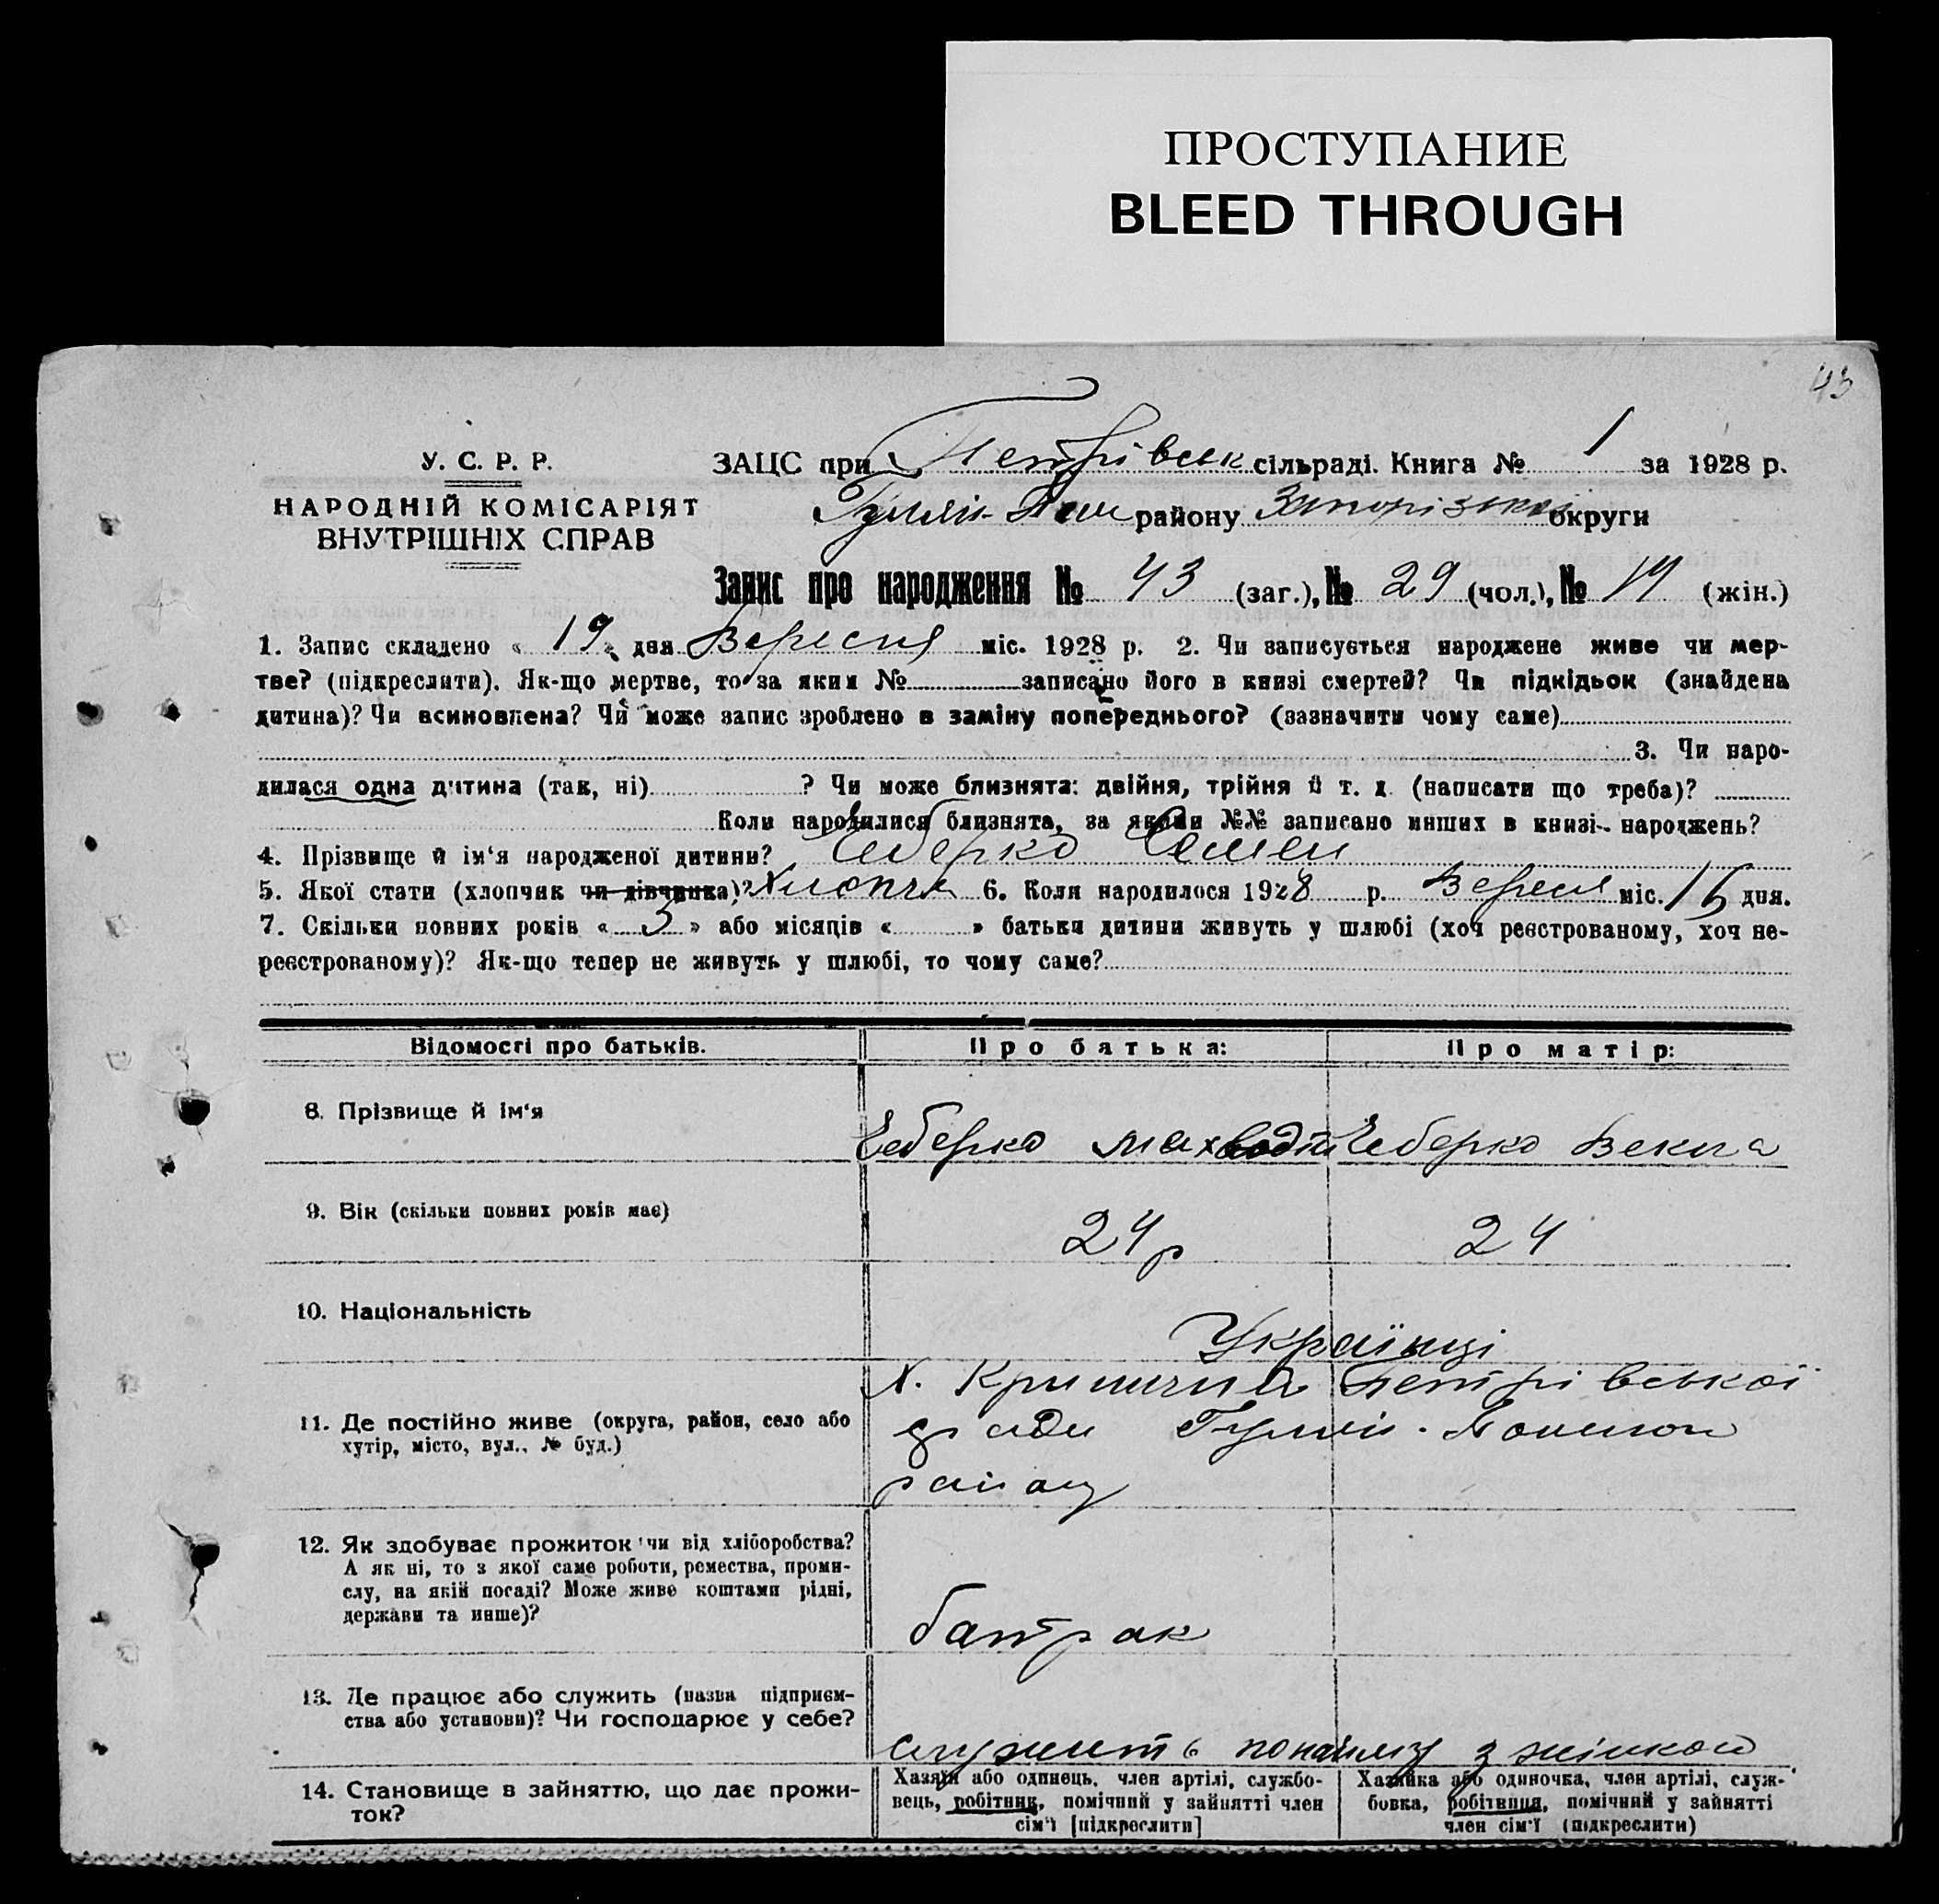 ПРОСТУПАНИЕ
BLEED THROUGH
43
У. С. Р. Р.
НАРОДНІЙ КОМІСАРІЯТ
ВНУТРІШНІХ СПРАВ
ЗАЦС при Петрівськ сільраді. Книга № 1 за 1928 р.
Гуляй-Пол району Запорізької округи
Запис про народження № 43 (заг.), № 29 (чол.), № 14 (жін.)
1. Запис складено « 19 » дня Вересня міс. 1928 р. 2. Чи записується народжене живе чи мер-
тве? (підкреслити). Як-що мертве, то за яким № записано його в книзі смертей? Чи підкідьок (знайдена
дитина)? Чи всиновлена? Чи може запис зроблено в заміну попереднього? (зазначити чому саме)
3. Чи наро-
дилася одна дитина (так, ні) ? Чи може близнята: двійня, трійня й т. д. (написати що треба)?
Коли народилися близнята, за якими №№ записано инших в книзі народжень?
4. Прізвище й ім'я народженої дитини? Чеберко Семен
5. Якої стати (хлопчик чи дівчинка)? Хлопчик 6. Коли народилося 1928 р. Вересня міс. 15 дня.
7. Скільки повних років « 3 » або місяців « » батьки дитини живуть у шлюбі (хоч реєстрованому, хоч не-
реєстрованому)? Як-що тепер не живуть у шлюбі, то чому саме?
Відомості про батьків. Про батька: Про матір:
8. Прізвище й ім'я
Чеберко Чеберко Векла
9. Вік (скільки повних років має)
24 р 24
10. Національність
Українці
11. Де постійно живе (округа, район, село або
хутір, місто, вул., № буд.)
х. Кринична Петрівської
с/ради Гуляй-
району
12. Як здобуває прожиток чи від хліборобства?
А як ні, то з якої саме роботи, ремества, проми-
слу, на якій посаді? Може живе коштами рідні,
держави та инше)?
батрак
13. Де працює або служить (назва підприєм-
ства або установи)? Чи господарює у себе?
служить по найму з жінкою
14. Становище в зайняттю, що дає прожи-
ток?
Хазяїн або одинець, член артілі, службо-
вець, робітник, помічний у зайнятті член
сім'ї [підкреслити]
Хазяйка або одиночка, член артілі, служ-
бовка, робітниця, помічний у зайнятті
член сім'ї (підкреслити)